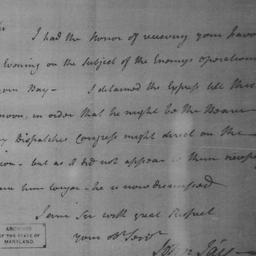 Sir
I had the Honor of receiving your favor
Evening on the subject of the Enemys operations
Bay — I detained the Express till this
noon, in order that he might be the Bearer
Dispatches Congress might direct on the
— but as it did not appear to them necessary
him longer — he is now dismissed
I am Sir with great Respect
your Ob Servt
John Jay
ARCHIVES
OF THE STATE OF
MARYLAND.